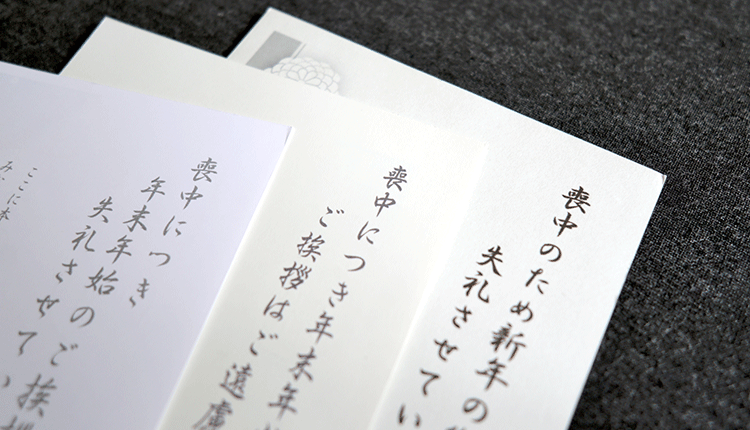 喪中のため新年の
失礼させてい
喪中につき年末年
ご挨拶はご遠慮
喪中につき
年末年始のご挨拶
失礼させてい
ここに本
み